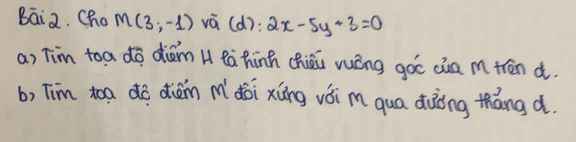 Bài 2. Cho M(3;-1) và (d): 2x - 5y + 3 = 0
a) Tìm toạ độ điểm H là hình chiếu vuông góc của M trên d.
b) Tìm toạ độ điểm M' đối xứng với M qua đường thẳng d.